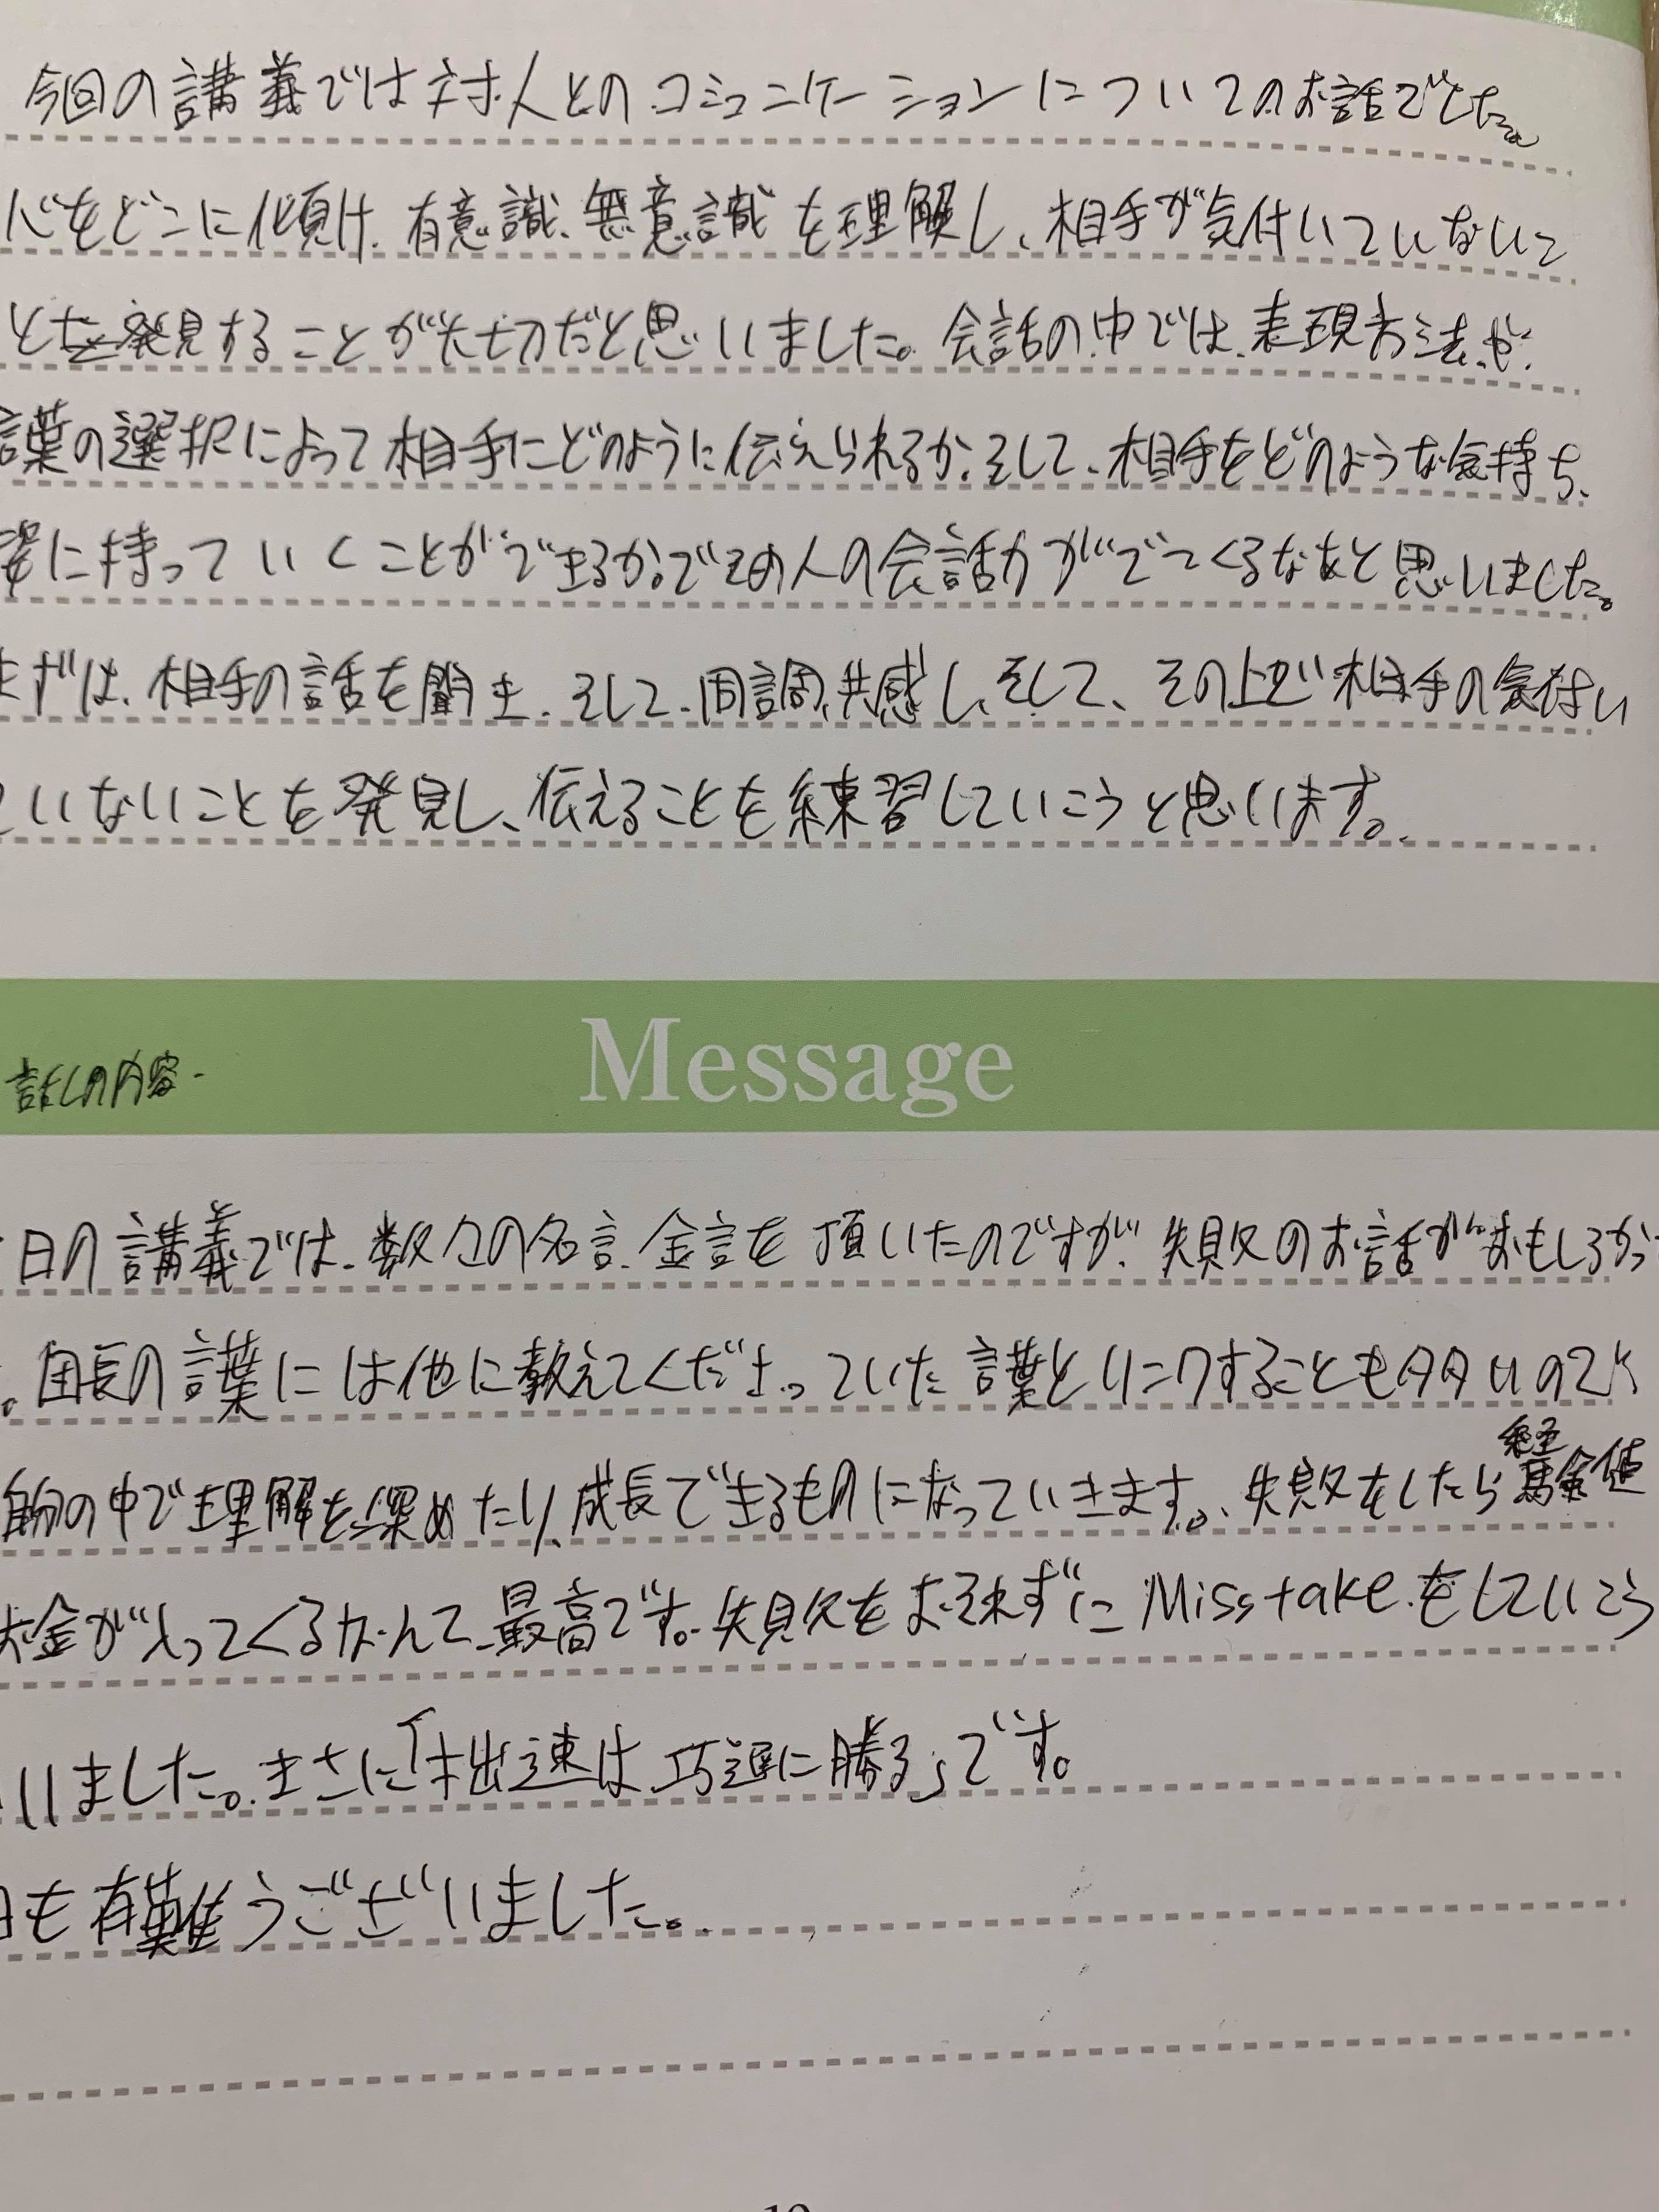 今回の講義では対人とのコミュニケーションについてのお話でした。
心をどこに傾け、有意識、無意識を理解し、相手が気付いていないこ
とを発見することが大切だと思いました。会話の中では、表現方法や、
言葉の選択によって相手にどのように伝えられるか、そして、相手をどのような気持ち、
姿に持っていくことができるかでその人の会話力がでてくるなあと思いました。
まずは、相手の話を聞き、そして、同調、共感し、そして、その上で相手の気付い
ていないことを発見し、伝えることを練習していこうと思います。
Message
話しの内容
日の講義では、数々の名言、金言を頂いたのですが、失敗のお話がおもしろかっ
。団長の言葉には他に教えてくださっていた言葉とリンクすることも多々あり
自分の中で理解を深めたり、成長できるものになっていきます。失敗をしたら経験値
お金が入ってくるなんて、最高です。失敗をおそれずにMisstakeをしていこう
いました。まさに「拙速は巧遅に勝る」です。
日も有難うございました。